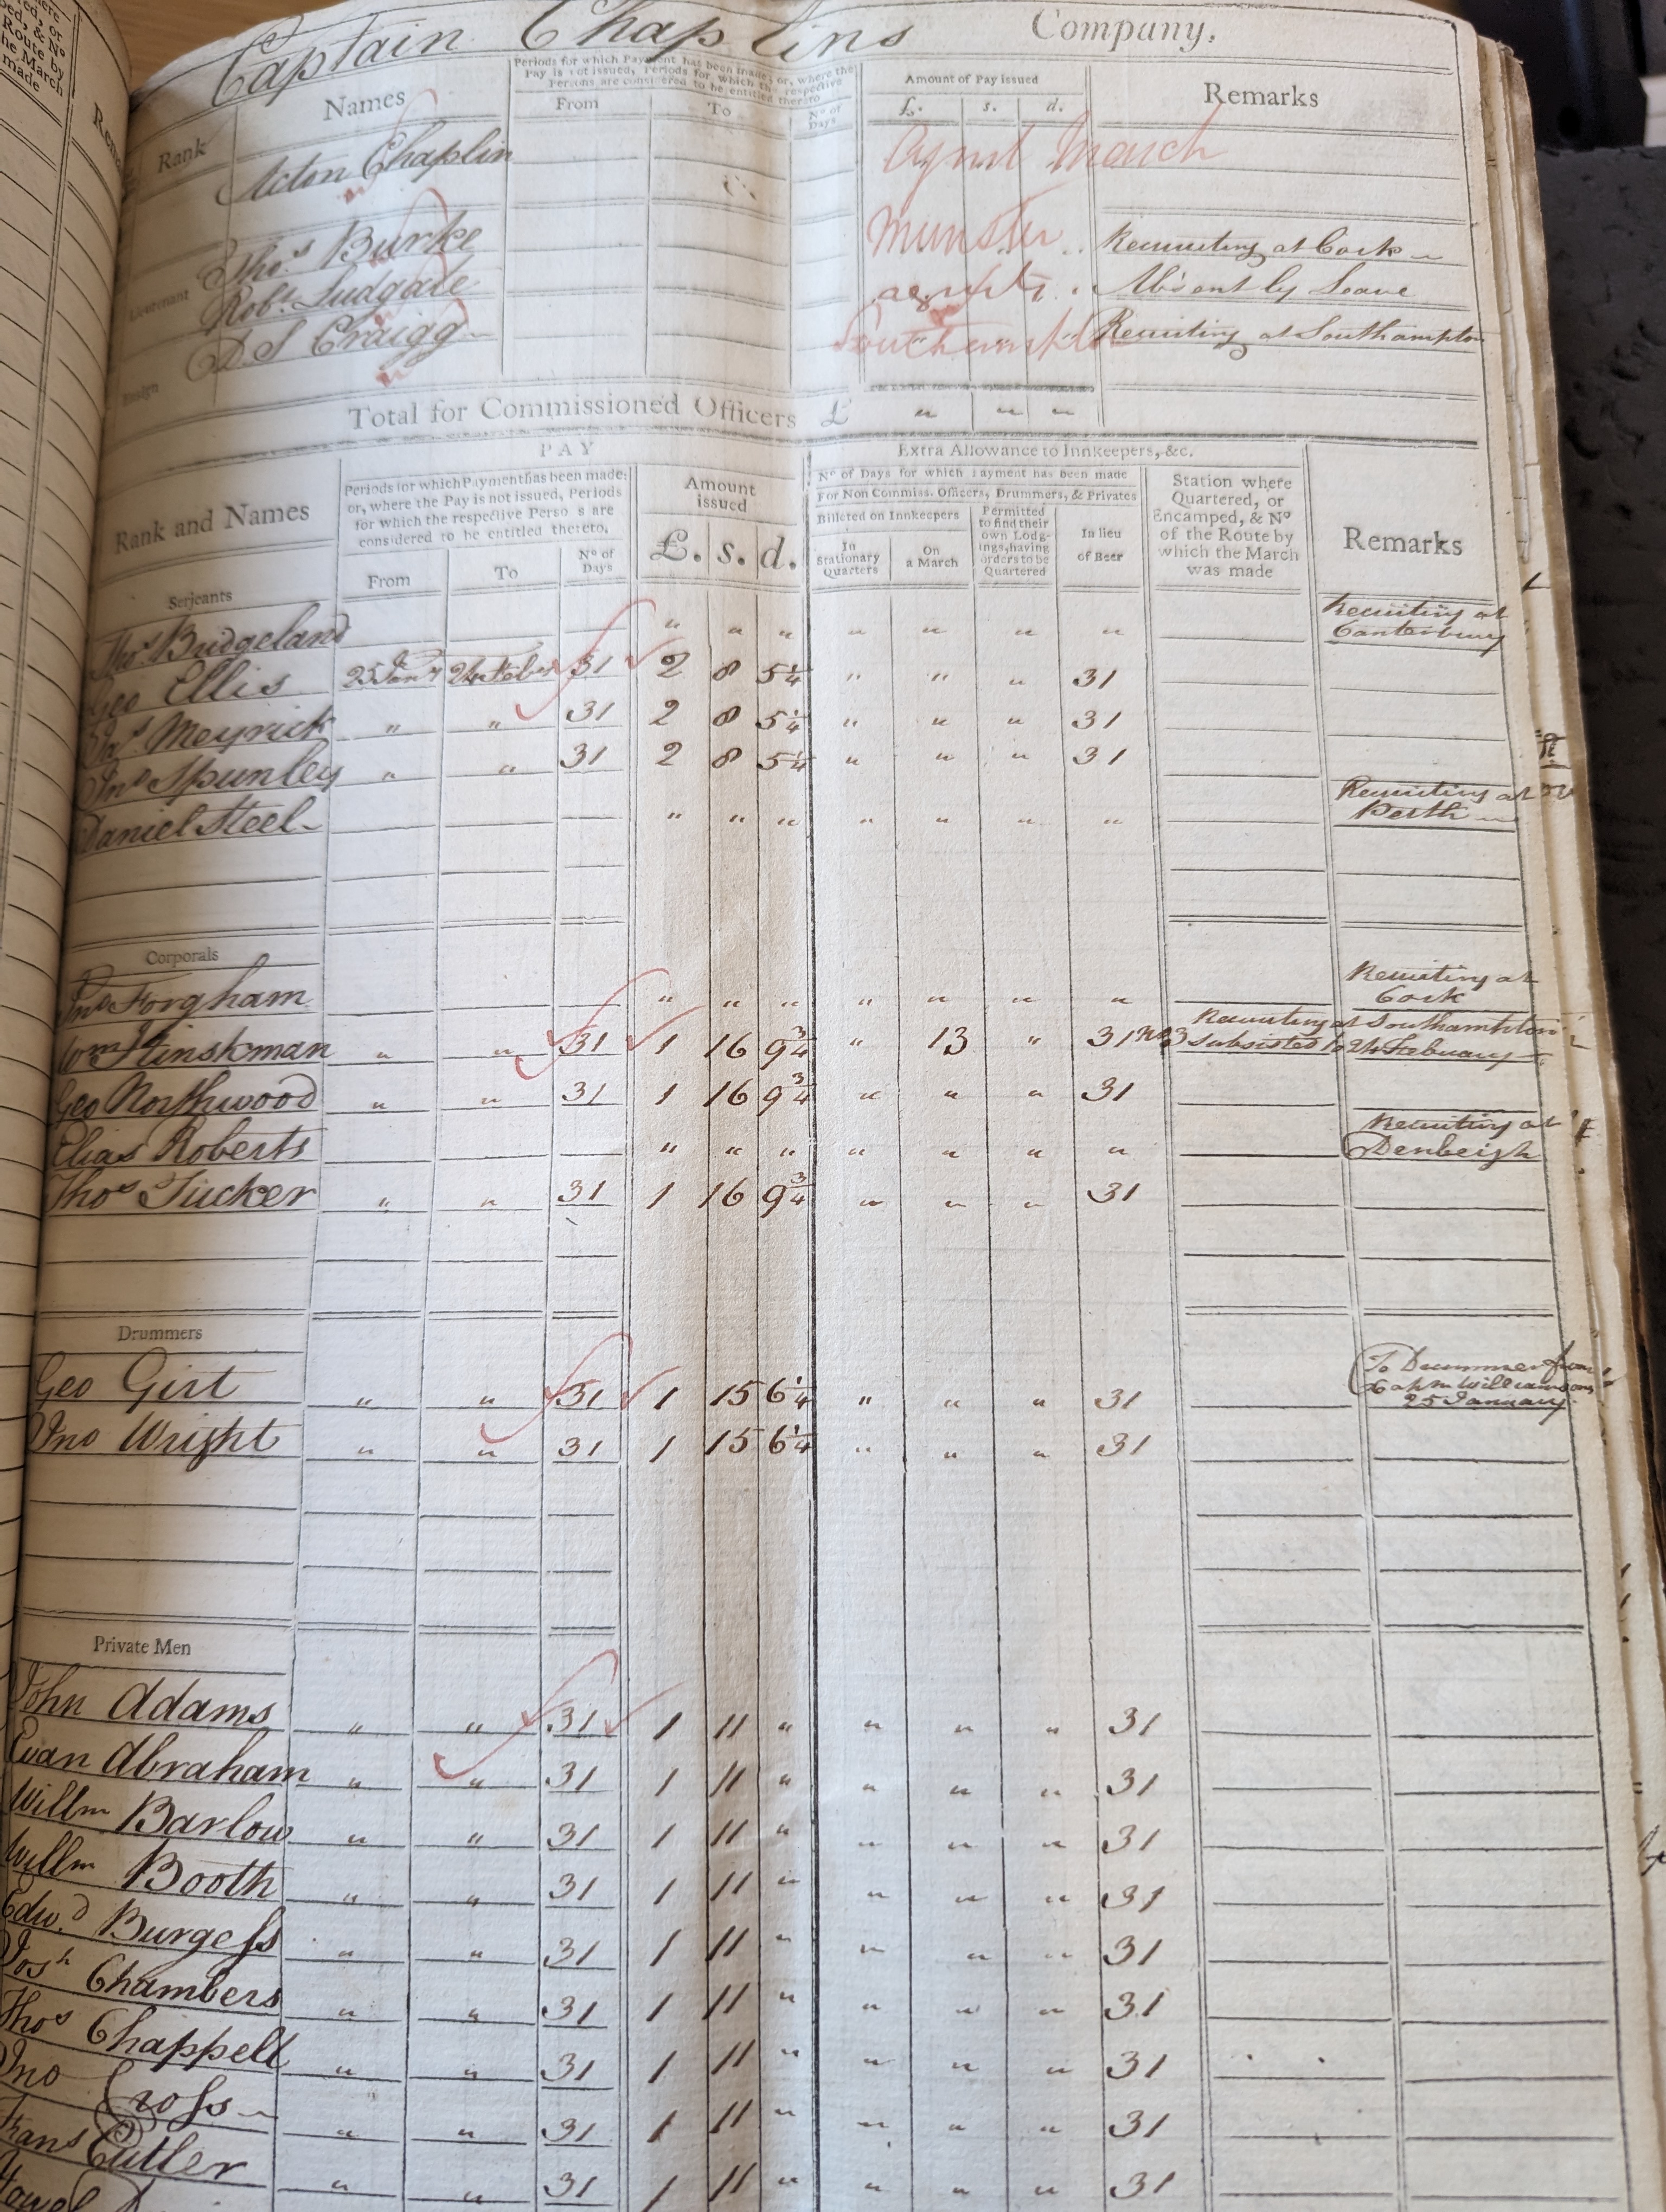 Captain Chaplins Company.
Rank
Names
Periods for which Payment has been made; or, where the
Pay is not issued, Periods for which the respective
Persons are considered to be entitled thereto
From To No of Days
Amount of Pay issued
£. s. d.
Remarks
Acton Chaplin Agnst March
Lieutenant Thos Burke Munster Recruiting at Cork
Robt Ludgate Absent by Leave
Ensign D. S Craigg Southampton Recruiting at Southampton
Total for Commissioned Officers £ " " "
PAY
Extra Allowance to Innkeepers, &c.
Rank and Names
Periods for which Payment has been made;
or, where the Pay is not issued, Periods
for which the respective Perso s are
considered to be entitled thereto.
From To No of Days
Amount issued
£. s. d.
No of Days for which Payment has been made
For Non Commiss. Officers, Drummers, & Privates
Billeted on Innkeepers
In Stationary Quarters
On a March
Permitted to find their own Lodgings, having orders to be Quartered
In lieu of Beer
Station where Quartered, or Encamped, & No of the Route by which the March was made
Remarks
Serjeants
Thos Bridgeland " " " " " " " Recruiting at Canterbury
Geo Ellis 25 Jany 24 Feby 31 2 8 5¼ " " " 31
Jas Meyrick " " 31 2 8 5¼ " " " 31
Jno Spunley " " 31 2 8 5¼ " " " 31
Daniel Steel " " " " " " " Recruiting at Perth
Corporals
Jno Forgham " " " " " " " Recruiting at Cork
Wm Hinskman " " 31 1 16 9¾ " 13 " 31 No 3 Recruiting at Southampton
Subsisted to 24 Febuary
Geo Northwood " " 31 1 16 9¾ " " " 31
Elias Roberts " " " " " " " Recruiting at Denbeigh
Thos Tucker " " 31 1 16 9¾ " " " 31
Drummers
Geo Girt " " 31 1 15 6¼ " " " 31 To Drummer from
Captn Williamsons
25 January
Jno Wright " " 31 1 15 6¼ " " " 31
Private Men
John Adams " " 31 1 11 " " " " 31
Evan Abraham " " 31 1 11 " " " " 31
Willm Barlow " " 31 1 11 " " " " 31
Willm Booth " " 31 1 11 " " " " 31
Edwd Burgess " " 31 1 11 " " " " 31
Josh Chambers " " 31 1 11 " " " " 31
Thos Chappell " " 31 1 11 " " " " 31
Jno Cross " " 31 1 11 " " " " 31
Frans Cutler " " 31 1 11 " " " " 31